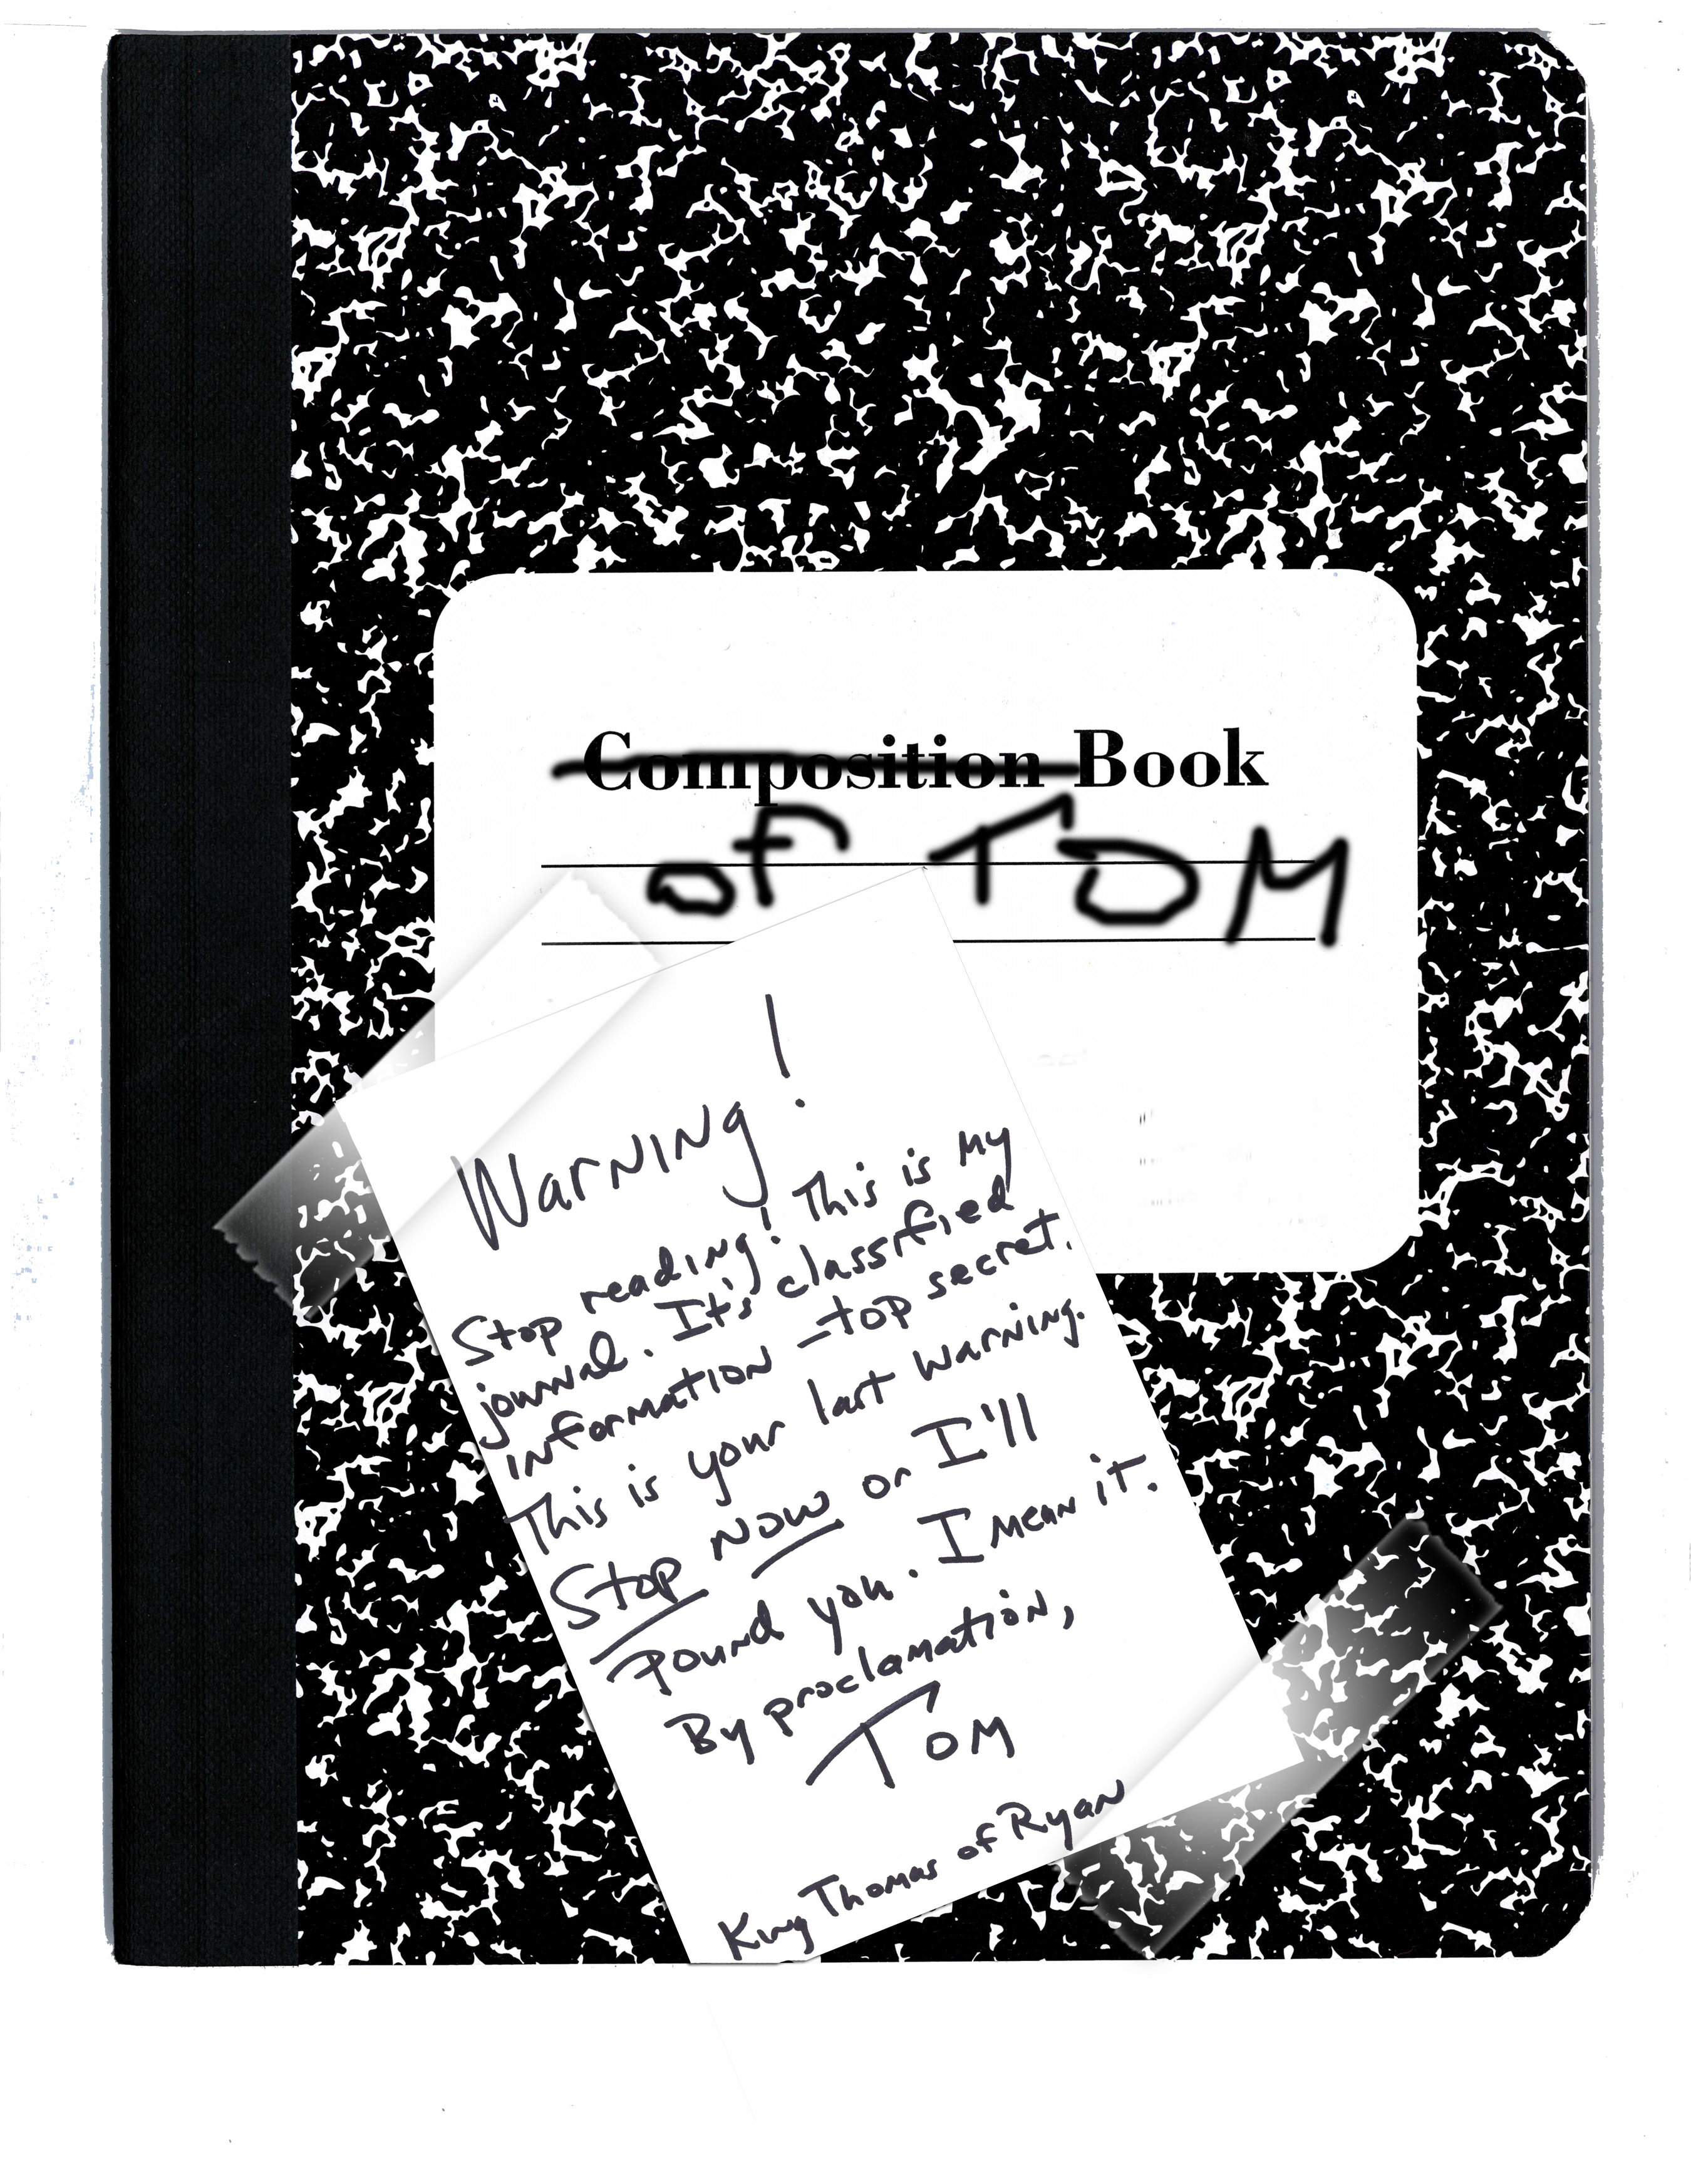 Composition Book
of TOM
Warning!
Stop reading! This is my
journal. It's classified
information - top secret.
This is your last warning.
Stop Now or I'll
Pound you. I mean it.
By proclamation,
Tom
King Thomas of Ryan